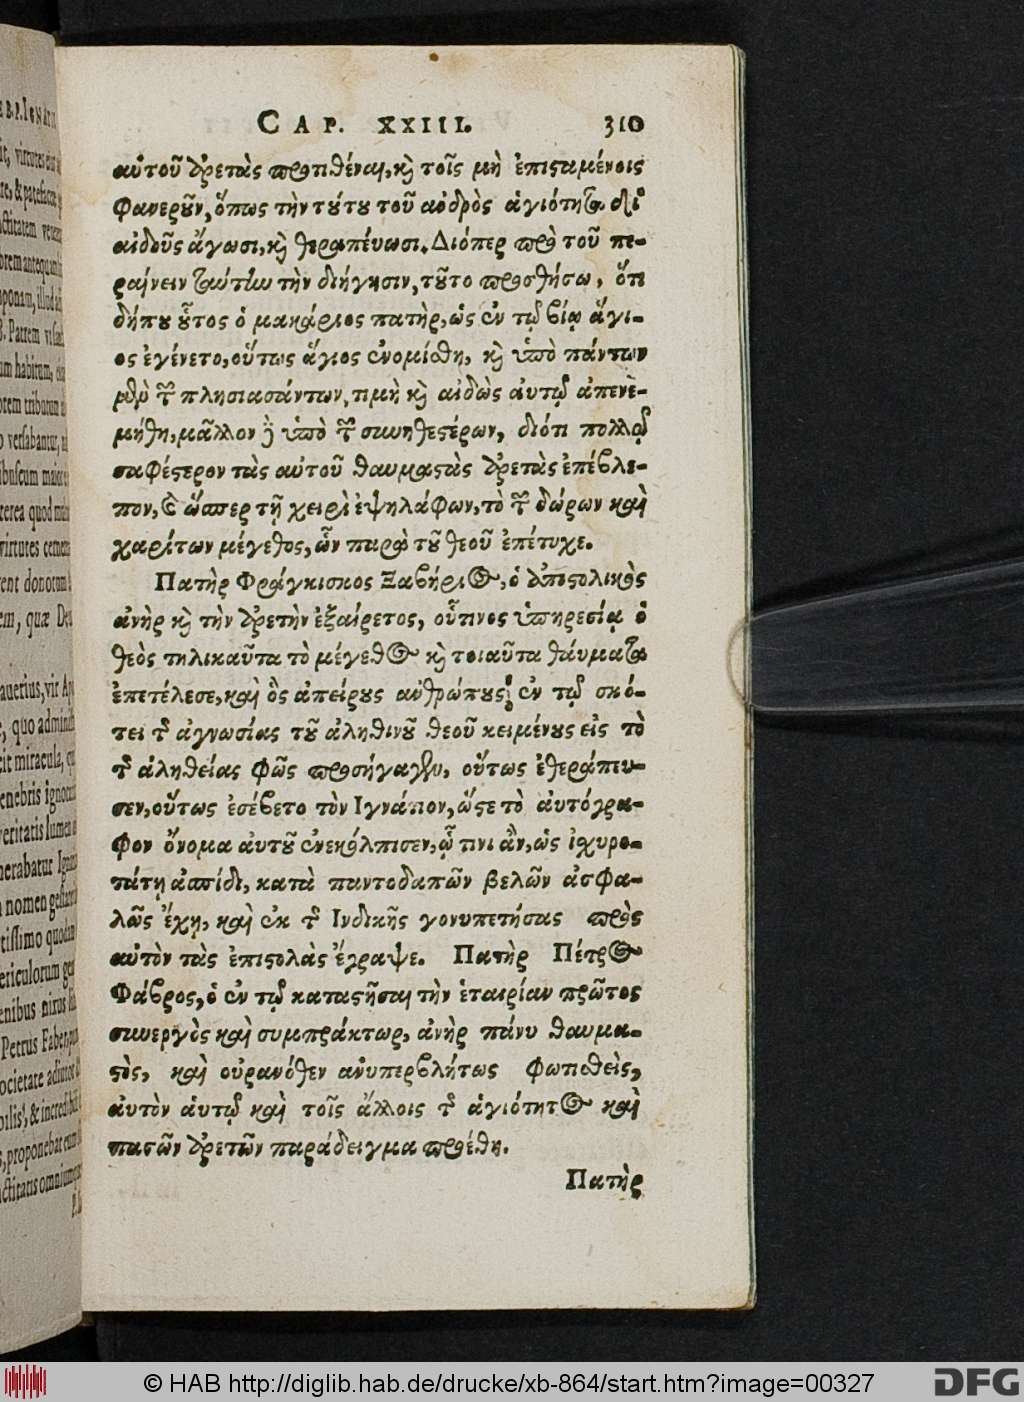 CAP. XXIII. 310
αὐτοῦ ἀρετὰς προτιθέναι, κὶ τοῖς μὴ ἐπισταμένοις
Φανερȣ͂ν, ὅπως τὴν τȣ́τȣ τοῦ ἀνδρὸς ἁγιότητα δι'
αἰδοῦς ἄγωσι, κὶ θεραπέυωσι. Διόπερ πρὸ τοῦ πε-
ραίνειν ταύτην τὴν διήγησιν, τȣ͂το προσθήσω, ὅτι
δήπȣ ȣ̔͂τος ὁ μακάριος πατὴρ, ὡς ἐν τῷ βίῳ ἅγι-
ος ἐγένετο, οὕτως ἅγιος ἐνομίσθη, κὶ ὑπὸ πάντων
μὲν τῶν πλησιασάντων, τιμὴ κὶ αἰδὼς ἀυτῷ ἀπενε-
μήθη, μᾶλλον δὲ ὑπὸ τῶν συνηθεστέρων, διότι πολλῷ
σαφέστερον τὰς αὐτοῦ θαυμαστὰς ἀρετὰς ἐπέβλε-
πον, καὶ ὥσπερ τῇ χειρὶ ἐψηλάφων, τὸ τῶν δώρων καὶ
χαρίτων μέγεθος, ὧν παρὰ τȣ͂ θεοῦ ἐπέτυχε.
Πατὴρ Φράγκισκος Ξαβήριος, ὁ ἀποστολικὸς
ἀνὴρ κὶ τὴν ἀρετὴν ἐξαίρετος, οὗτινος ὑπηρεσίᾳ ὁ
θεὸς τηλικαῦτα τὸ μέγεθος κὶ τοιαῦτα θάυματα
ἐπετέλεσε, καὶ ὃς ἀπείρȣς ἀνθρώπȣς ἐν τῷ σκό-
τει τῆς ἀγνωσίας τȣ͂ ἀληθινȣ͂ θεοῦ κειμένȣς εἰς τὸ
τῆς ἀληθείας φῶς προσήγαγεν, οὕτως ἐθεράπευ-
σεν, οὕτως ἐσέβετο τὸν Ιγνάτιον, ὥστε τὸ ἀυτόγρα-
φον ὄνομα ἀυτȣ͂ ἐνεκόλπισεν, ᾧ τινι ἂν, ὡς ἰσχυρο-
τάτῃ ἀσπίδι, κατὰ παντοδαπῶν βελῶν ἀσφα-
λῶς ἔχῃ, καὶ ἐκ τῆς Ἰνδικῆς γονυπετήσας πρὸς
αὐτὸν τὰς ἐπιστολὰς ἔγραψε. Πατὴρ Πέτρος
Φάβρος, ὁ ἐν τῷ καταστῆσαι τὴν ἑταιρίαν πρῶτος
συνεργὸς καὶ συμπράκτωρ, ἀνὴρ πάνυ θαυμα-
στὸς, καὶ οὐρανόθεν ἀνυπερβλήτως φωτισθεὶς,
ἀυτὸν ἑυτῷ καὶ τοῖς ἄλλοις τῆς ἁγιότητος καὶ
πασῶν ἀρετῶν παράδειγμα προέθη.
Πατὴρ
© HAB http://diglib.hab.de/drucke/xb-864/start.htm?image=00327
DFG